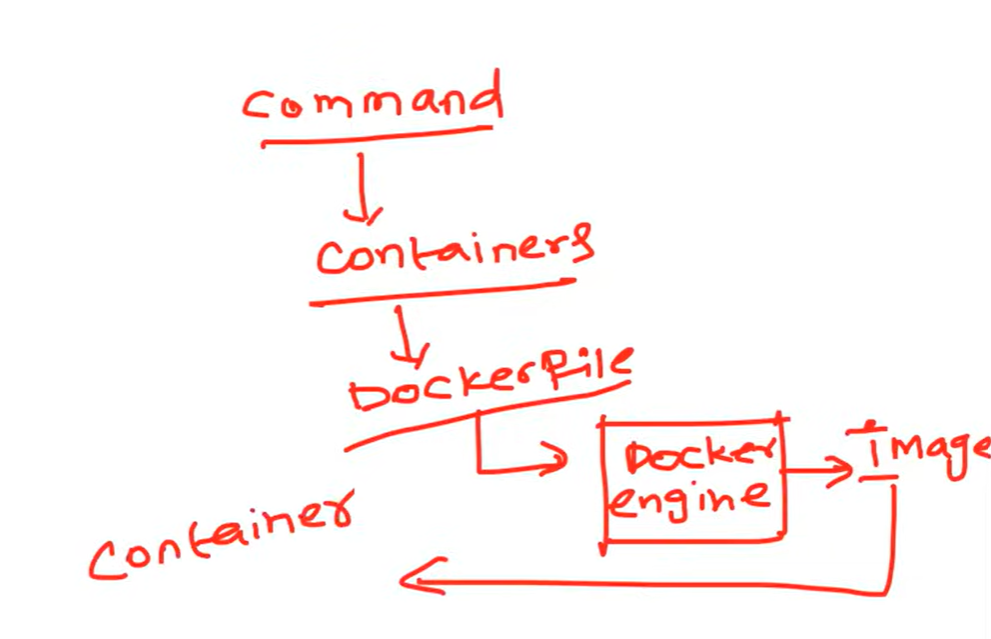 Command
Containers
DockerFile
Docker
engine
Image
Container